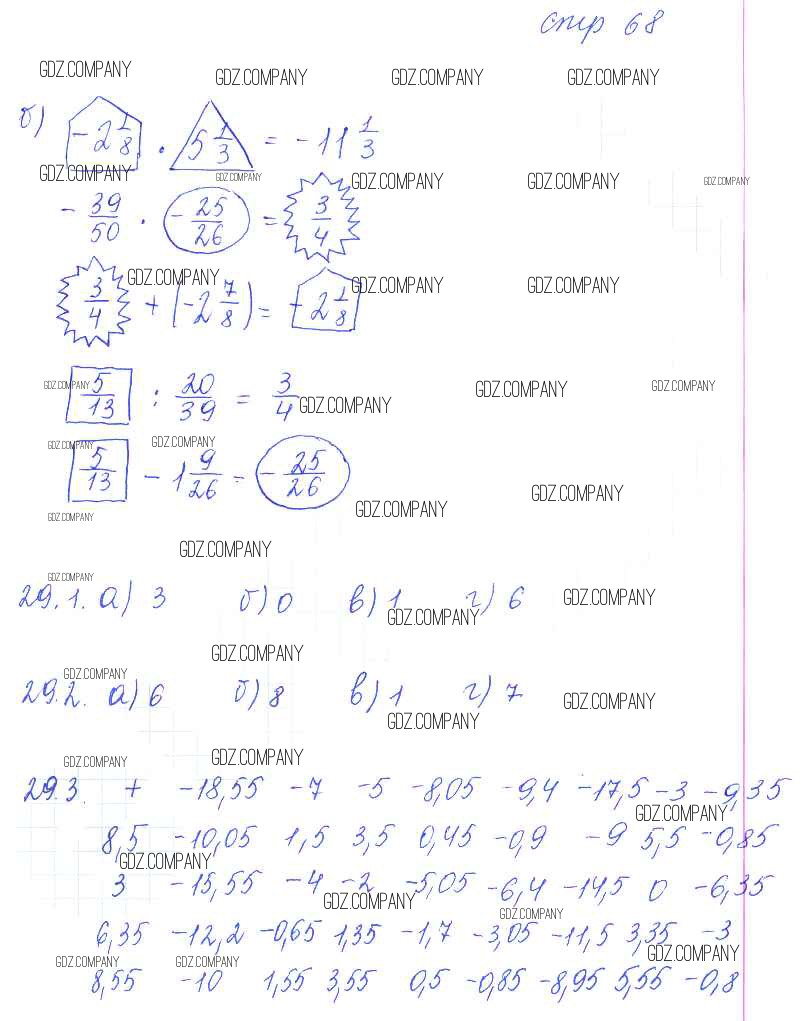 стр 68
GDZ.COMPANY GDZ.COMPANY GDZ.COMPANY GDZ.COMPANY
б) -2 1/8 · 5 1/3 = -11 1/3
GDZ.COMPANY GDZ.COMPANY GDZ.COMPANY GDZ.COMPANY GDZ.COMPANY
- 39/50 · - 25/26 = 3/4
GDZ.COMPANY GDZ.COMPANY GDZ.COMPANY
3/4 + (-2 7/8) = -2 1/8
GDZ.COMPANY GDZ.COMPANY GDZ.COMPANY GDZ.COMPANY
5/13 : 20/39 = 3/4
GDZ.COMPANY GDZ.COMPANY
5/13 - 1 9/26 = - 25/26
GDZ.COMPANY GDZ.COMPANY GDZ.COMPANY
GDZ.COMPANY
GDZ.COMPANY
29.1. а) 3 б) 0 в) 1 г) 6 GDZ.COMPANY
GDZ.COMPANY
GDZ.COMPANY
GDZ.COMPANY
29.2. а) 6 б) 8 в) 1 г) 7 GDZ.COMPANY
GDZ.COMPANY
GDZ.COMPANY GDZ.COMPANY
29.3. + -18,55 -7 -5 -8,05 -9,4 -17,5 -3 -9,35
GDZ.COMPANY
8,5 -10,05 1,5 3,5 0,45 -0,9 -9 5,5 -0,85
GDZ.COMPANY
3 -15,55 -4 -2 -5,05 -6,4 -14,5 0 -6,35
GDZ.COMPANY GDZ.COMPANY
6,35 -12,2 -0,65 1,35 -1,7 -3,05 -11,5 3,35 -3
GDZ.COMPANY GDZ.COMPANY GDZ.COMPANY
8,55 -10 1,55 3,55 0,5 -0,85 -8,95 5,55 -0,8